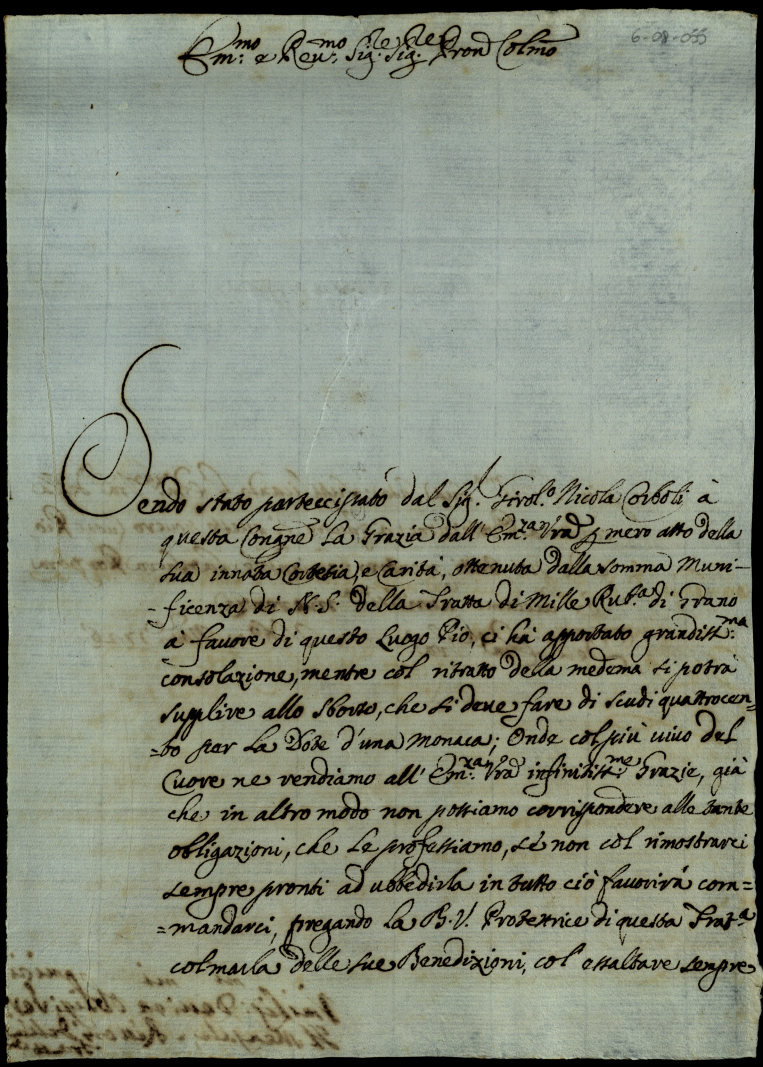 Em.mo e Reu.mo Sig.re Sig.re Pron Colmo
6-08-055
Sendo stato partecipato dal Sig.r Girol.o Nicola Corboli à
questa Congne la Grazia dall' Em.za Vra p mero atto della
sua innata Cortesia, e Carità, ottenuta dalla somma Muni-
-ficenza di N. S. della Tratta di Mille Rub.a di Grano
à favore di questo Luogo Pio, ci hà apportato grandiss.ma
consolazione, mentre col ritratto della medema si potrà
supplire allo sborso, che si deve fare di scudi quattrocen=
=to per la Dote d'una Monaca; Onde col più vivo del
Cuore ne rendiamo all' Em.za Vra infinitiss.me Grazie, già
che in altro modo non possiamo corrispondere alle tante
obligazioni, che Le professiamo, sè non col rimostrarci
sempre pronti ad ubbedirla in tutto ciò favorirà com=
=mandarci, pregando la B. V. Protettrice di questa Frat.a
colmarla delle sue Benedizioni, col' essaltare sempre